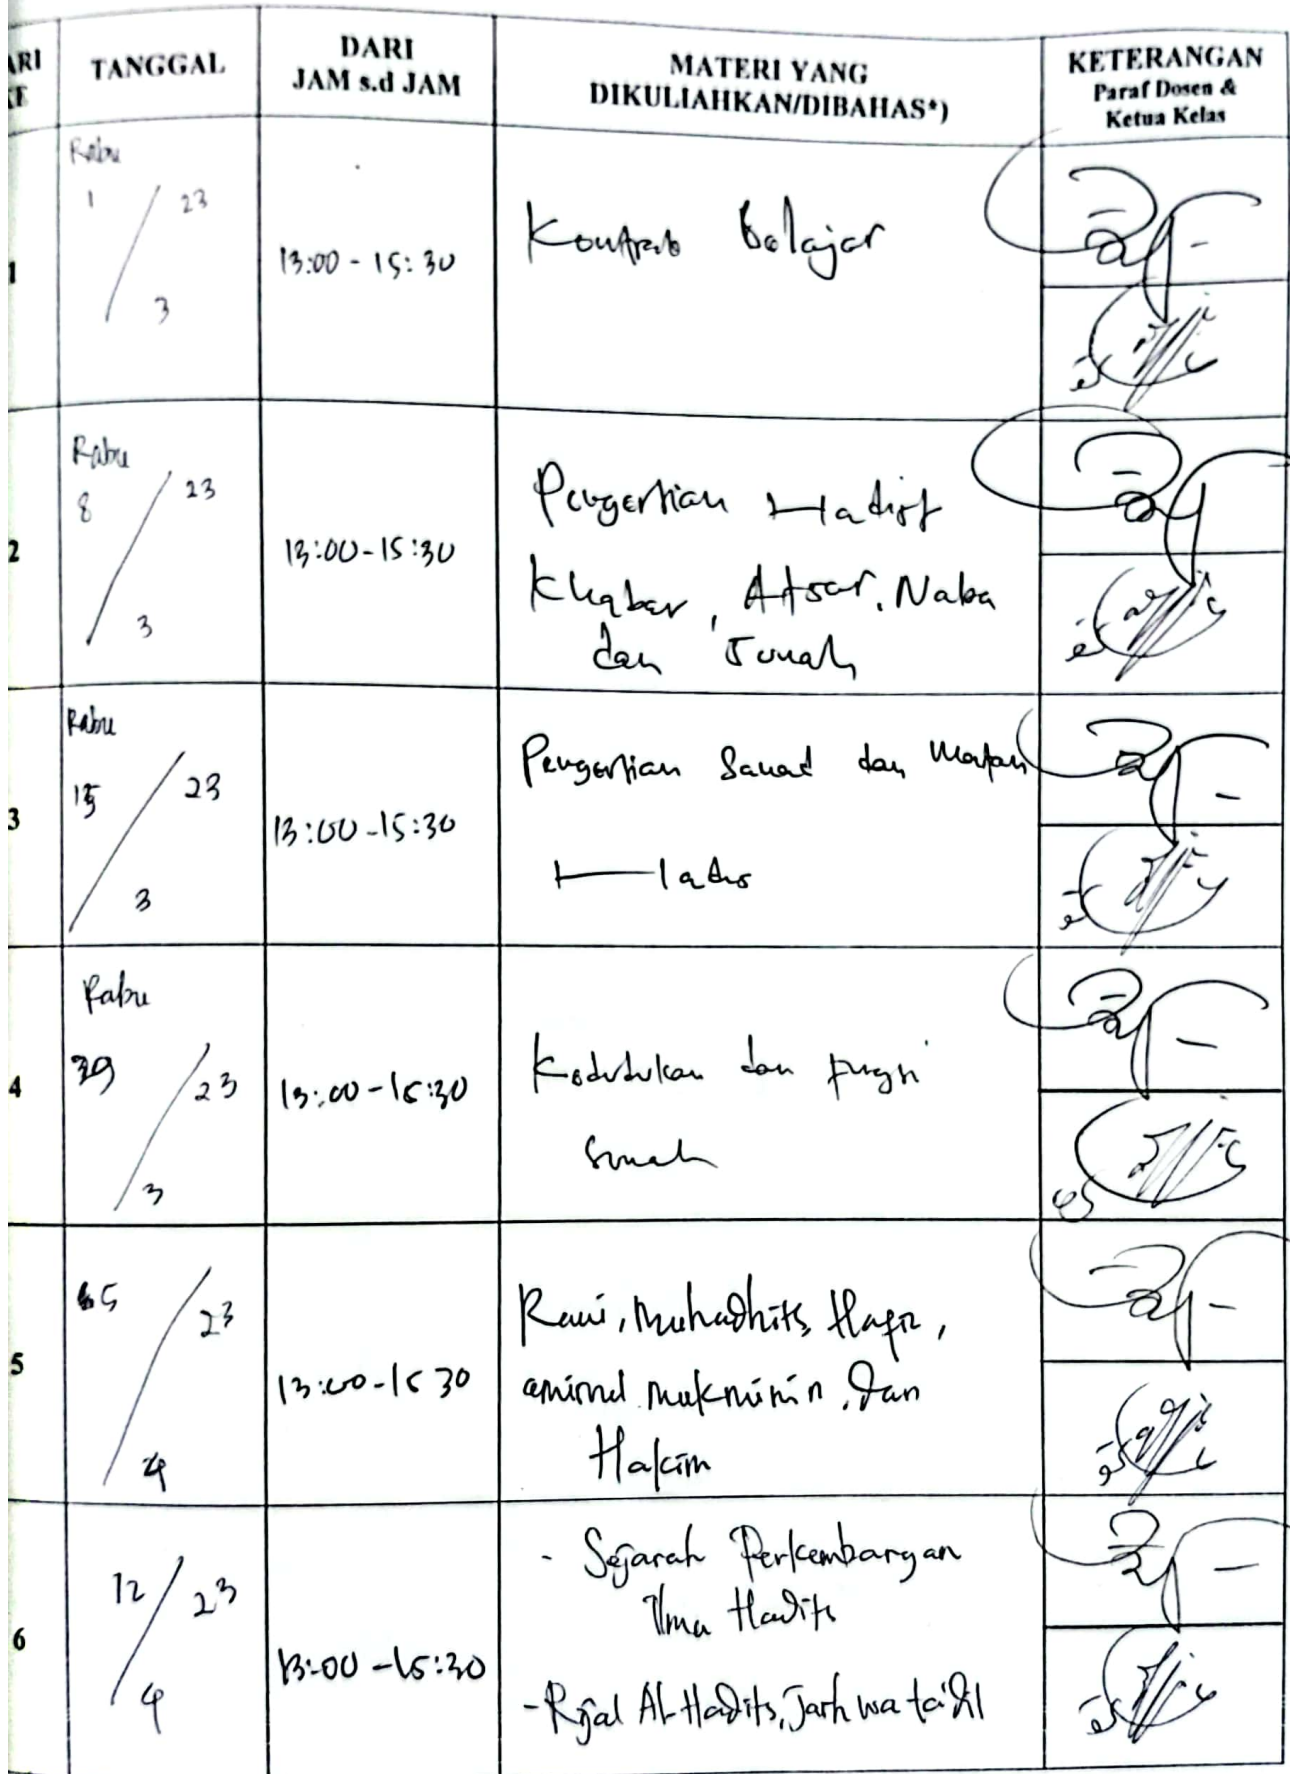 ARI
KE
TANGGAL
DARI
JAM s.d JAM
MATERI YANG
DIKULIAHKAN/DIBAHAS*)
KETERANGAN
Paraf Dosen &
Ketua Kelas
1
Rabu
1 / 23
3
13:00 - 15:30
Kontrak Belajar
2
Rabu
8 / 23
3
13:00-15:30
Pengertian Hadist
Khabar, Atsar, Naba
dan Sunah
3
Rabu
15 / 23
3
13:00-15:30
Pengertian Sanad dan Matan
Hadis
4
Rabu
/ 23
3
13:00-15:30
Kedudukan dan fungsi
Sunah
5
5 / 23
4
13:00-15 30
Rawi, Muhadhits, Hafiz,
amirul mukminin, dan
Hakim
6
12 / 23
4
13:00-15:30
- Sejarah Perkembangan
Ilmu Hadits
- Rijal Al-Hadits, Jarh wa ta'dil